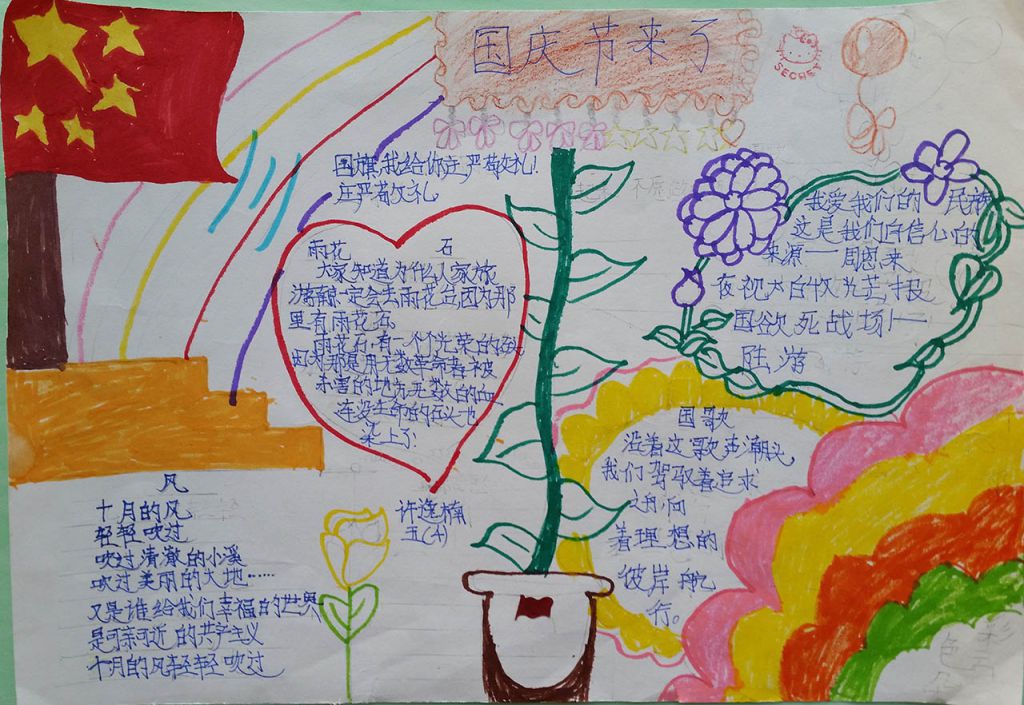 国庆节来了
SECRET
国旗,我给你庄严敬礼!
庄严敬礼
雨花 石
大家知道为什么人家旅
一定会去雨花台,因为那
里有雨花石
雨花石·有一个光荣的
那是用无数革命者被
的地方无数的血
连没生命的石
染上了
我爱我们的 民族
这是我们自信心的
来源——周恩来
夜视太白收光芒 报
国欲死战场!——
陆游
国歌
沿着这歌声潮头
我们驾驭着追求
之舟,向
着理想的
彼岸航
行。
许逸楠
五(4)
风
十月的风
轻轻吹过
吹过清澈的小溪
吹过美丽的大地……
又是谁给我们幸福的世界
是可亲可近的共产主义
十月的风轻轻吹过
彩
色